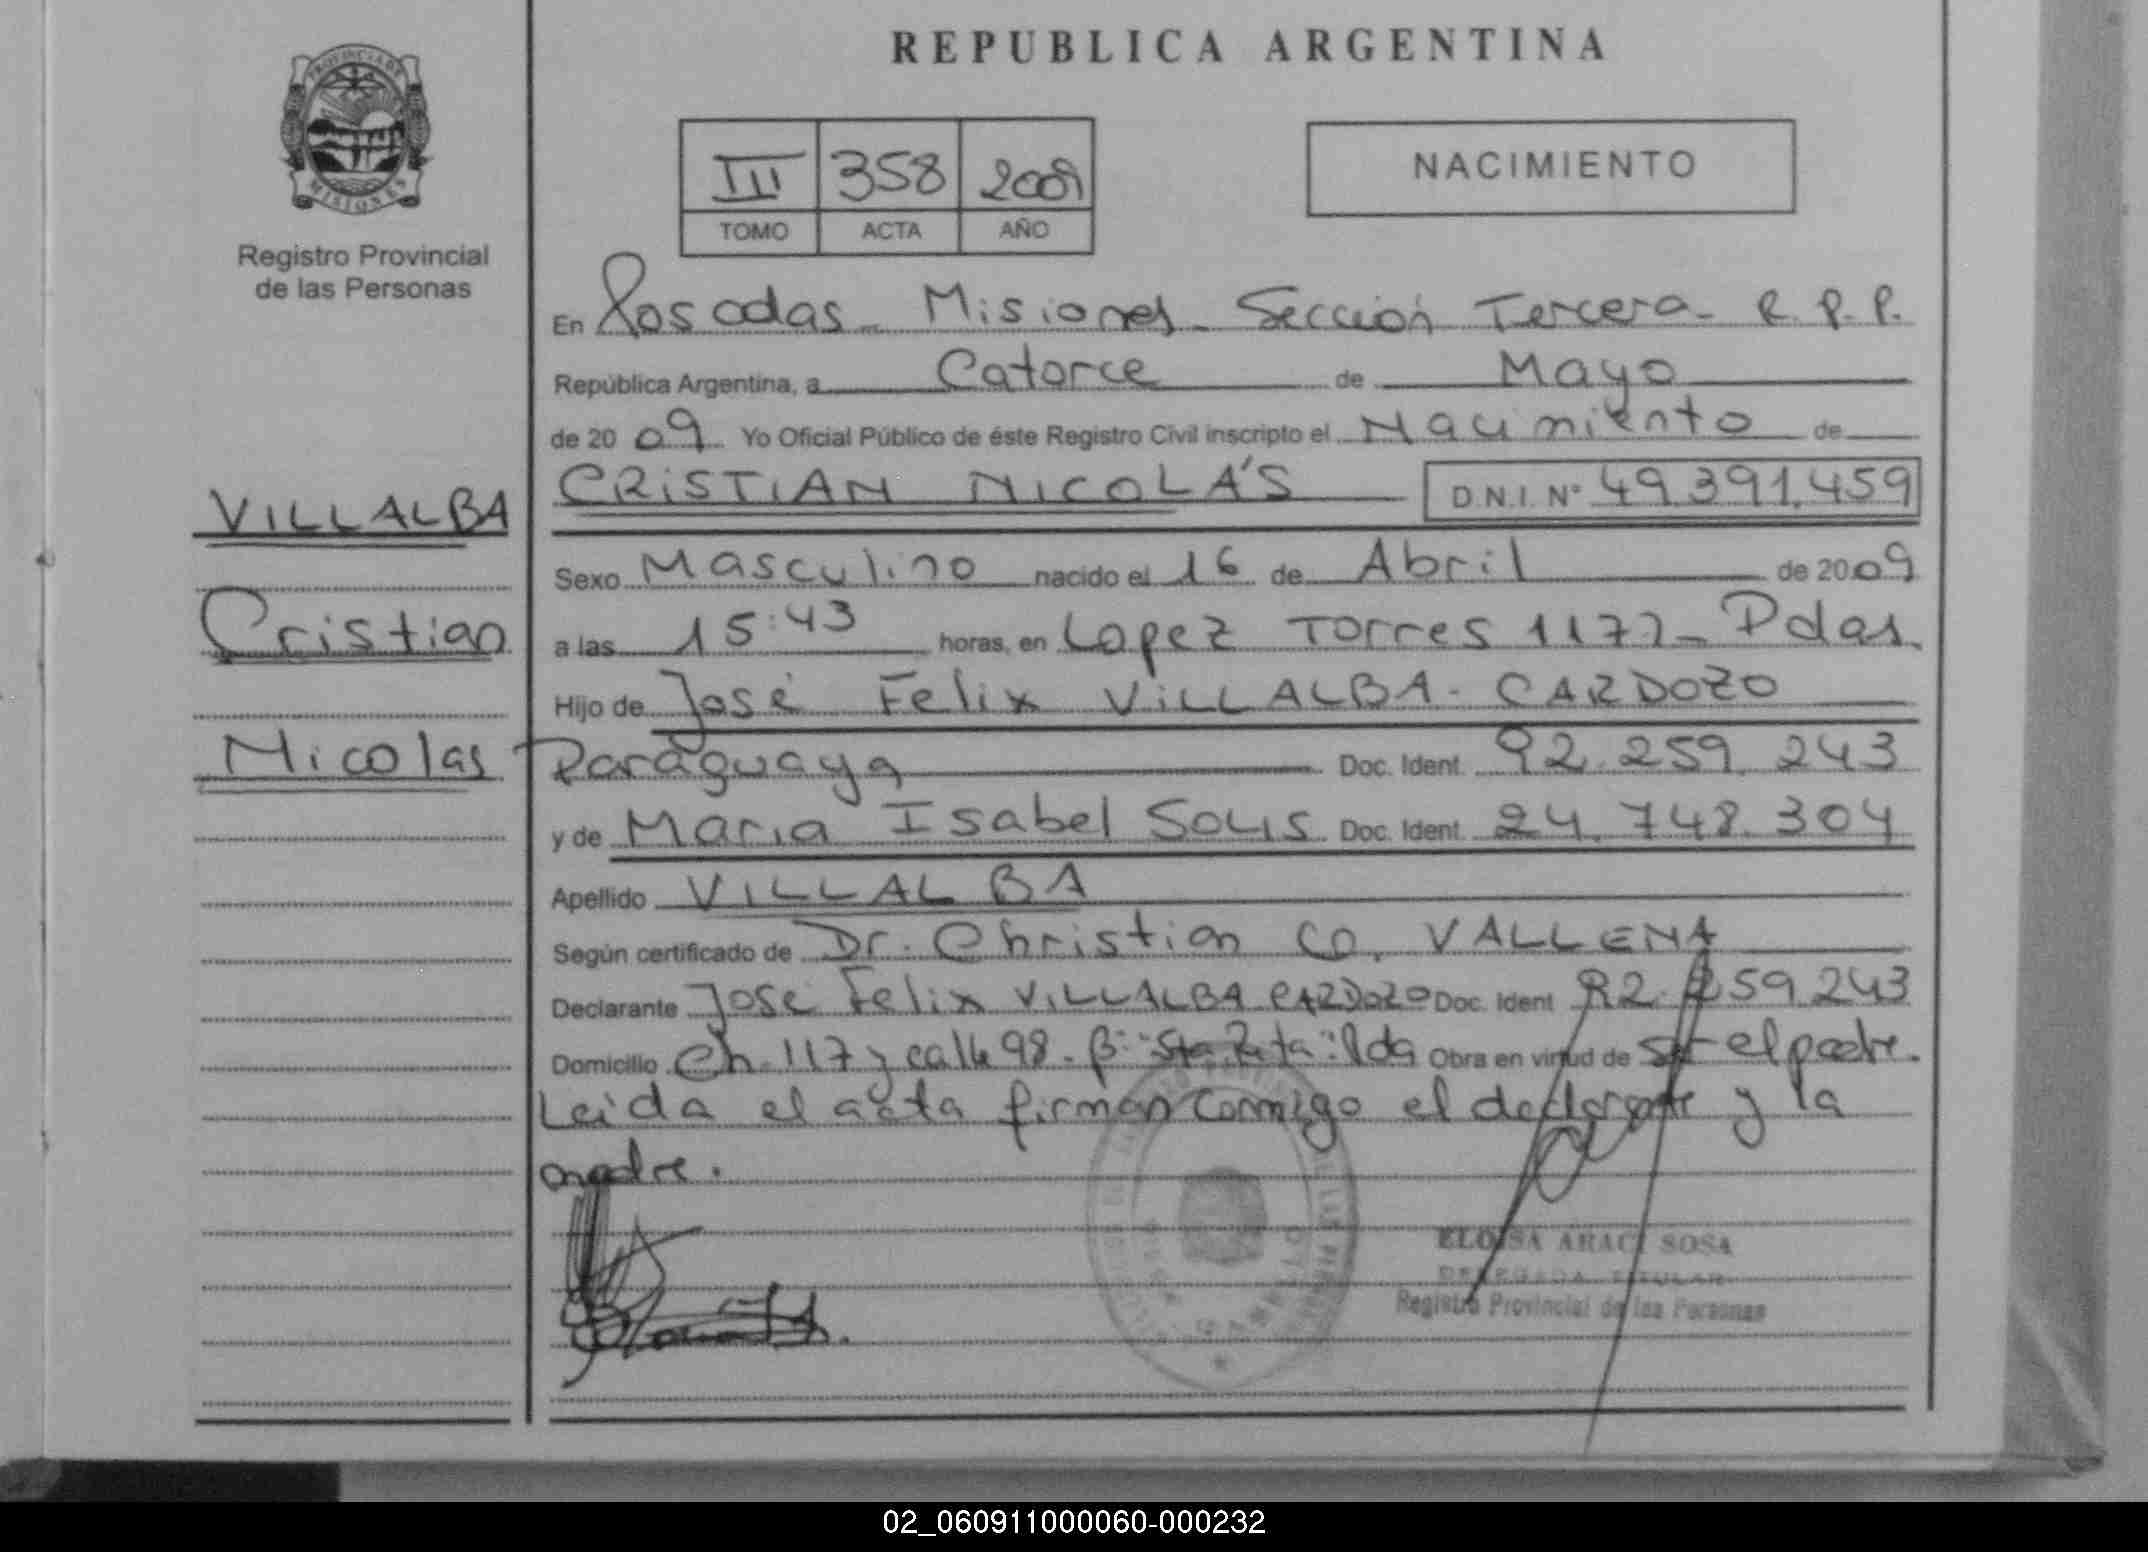 REPUBLICA ARGENTINA
PROVINCIA DE
MISIONES
Registro Provincial
de las Personas
III 358 2009
TOMO ACTA AÑO
NACIMIENTO
En Posadas - Misiones - Sección Tercera - R.P.P.
República Argentina, a Catorce de Mayo
de 20 09 Yo Oficial Público de éste Registro Civil inscripto el Nacimiento de
VILLALBA
Cristian
Nicolas
CRISTIAN NICOLÁS D.N.I. Nº 49.391.459
Sexo Masculino nacido el 16 de Abril de 2009
a las 15:43 horas, en Lopez Torres 1177 - Pdas.
Hijo de José Felix VILLALBA - CARDOZO
Paraguaya Doc. Ident. 92.259.243
y de Maria Isabel SOLIS Doc. Ident. 24.748.304
Apellido VILLALBA
Según certificado de Dr. Christian VALLENA
Declarante José Felix VILLALBA CARDOZO Doc. Ident 92.259.243
Domicilio Ch. 117 y calle 98 - Bº "Sta. Rita" Pdas Obra en virtud de ser el padre.
Leida el acta firman conmigo el declarante y la
madre.
ELOISA ARACI SOSA
DELEGADA TITULAR
Registro Provincial de las Personas
02_060911000060-000232